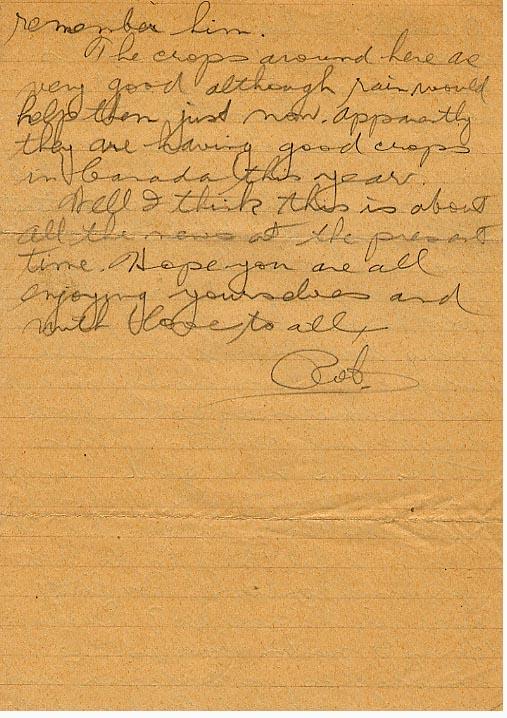 remember him.
The crops around here are
very good although rain would
help them just now. Apparently
they are having good crops
in Canada this year.
Well I think this is about
all the news at the present
time. Hope you are all
enjoying yourselves and
with love to all,
Rob.